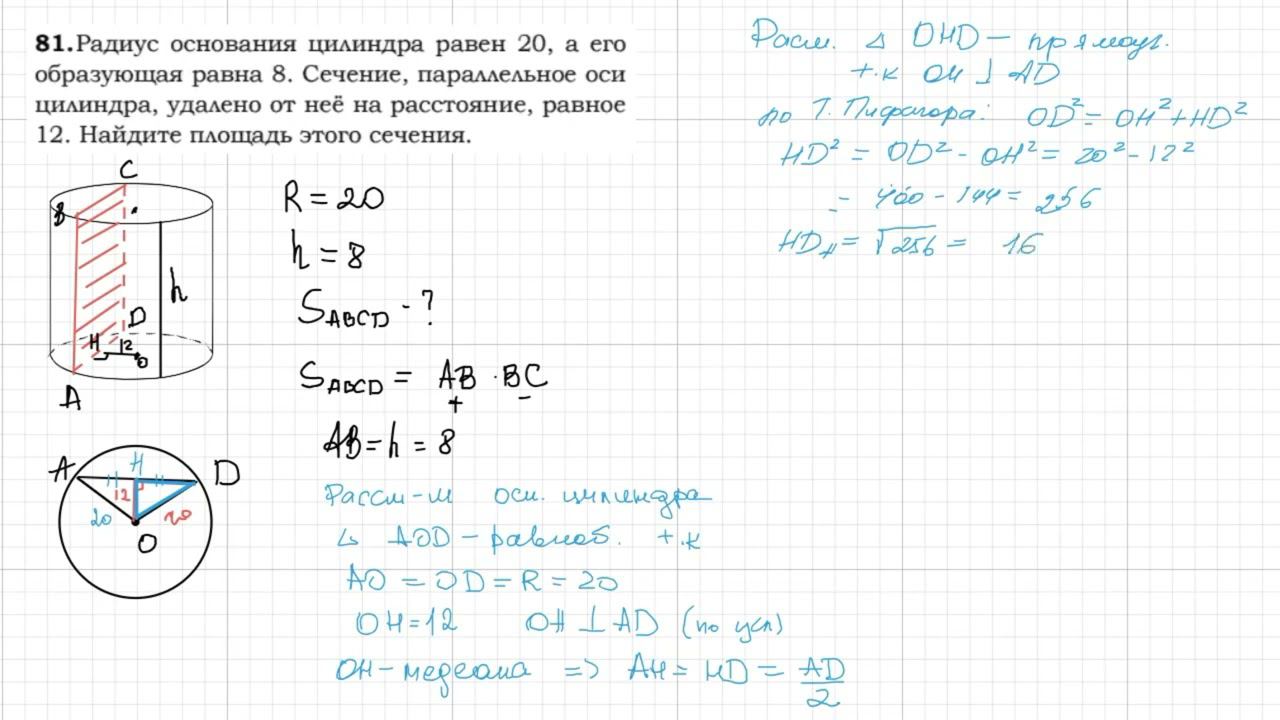 81.Радиус основания цилиндра равен 20, а его
образующая равна 8. Сечение, параллельное оси
цилиндра, удалено от неё на расстояние, равное
12. Найдите площадь этого сечения.
C
B
h
D
H 12 O
A
A H D
12
20 20
O
R = 20
h = 8
S_ABCD - ?
S_ABCD = AB · BC
+ −
AB = h = 8
Рассм-м осн. цилиндра
△ AOD – равноб. т.к
AO = OD = R = 20
OH = 12 OH ⊥ AD (по усл)
OH – медиана => AH = HD = AD/2
Расм. △ OHD – прямоуг.
т.к OH ⊥ AD
по Т. Пифагора: OD² = OH² + HD²
HD² = OD² - OH² = 20² - 12²
= 400 - 144 = 256
HD = √256 = 16